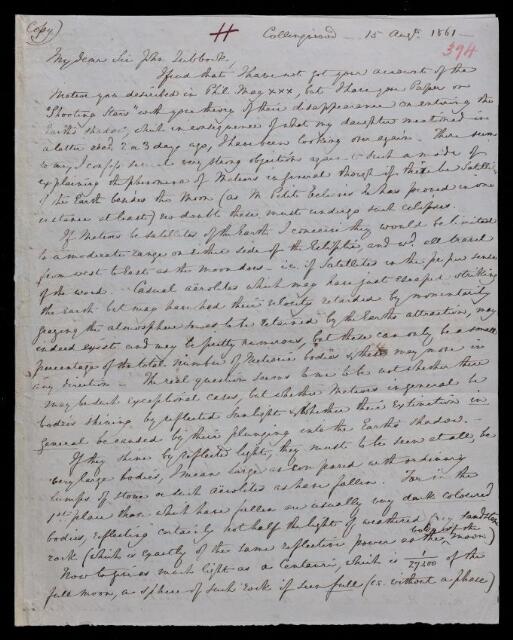 (Copy)
Collingwood — 15 Augt. 1861 —
394
My Dear Sir John Lubbock,
I find that I have not got your account of the
Meteor you described in Phil. Mag xxx, but I have your Paper on
"Shooting Stars" with your theory of their disappearance on entering the
Earth's shadow, which in consequence of what my daughter mentioned in
a letter recd 2 or 3 days ago, I have been looking over again. There seem
to me, I confess several very strong objections against such a mode of
explaining the phenomena of Meteors in general though if there be Satellites
of the Earth besides the Moon (as M. Petit believes he has proved in one
instance at least) no doubt these must undergo such eclipses.
If Meteors be satellites of the Earth I conceive they would be limited
to a moderate range on either side of the Ecliptic, and wd. all travel
from west to East as the moon does — i.e. if Satellites in the proper sense
of the word. — Casual aerolites which may have just escaped striking
the Earth but may have had their velocity retarded by momentarily
grazing the atmosphere so as to be retained by the Earth's attraction, may
indeed exist and may be pretty numerous, but these can only be a small
percentage of the total number of Meteoric bodies & these may move in
any direction — The real question seems to me to be not whether there
may be such exceptional cases, but whether Meteors in general be
bodies shining by reflected sunlight & whether their extinction in
general be caused by their plunging into the Earth's shadow. —
If they shine by reflected light, they must to be seen at all, be
very large bodies, I mean large as compared with ordinary
lumps of stone or such aerolites as have fallen. For in the
1st place those which have fallen are usually very dark coloured
bodies, reflecting certainly not half the light of weathered sandstone
rock (which is exactly of the same reflective power as the substance of the moon)
Now to give as much light as α Centauri, which is 1/27400 of the
full moon, a sphere of such rock if seen full (i.e. without a phase)